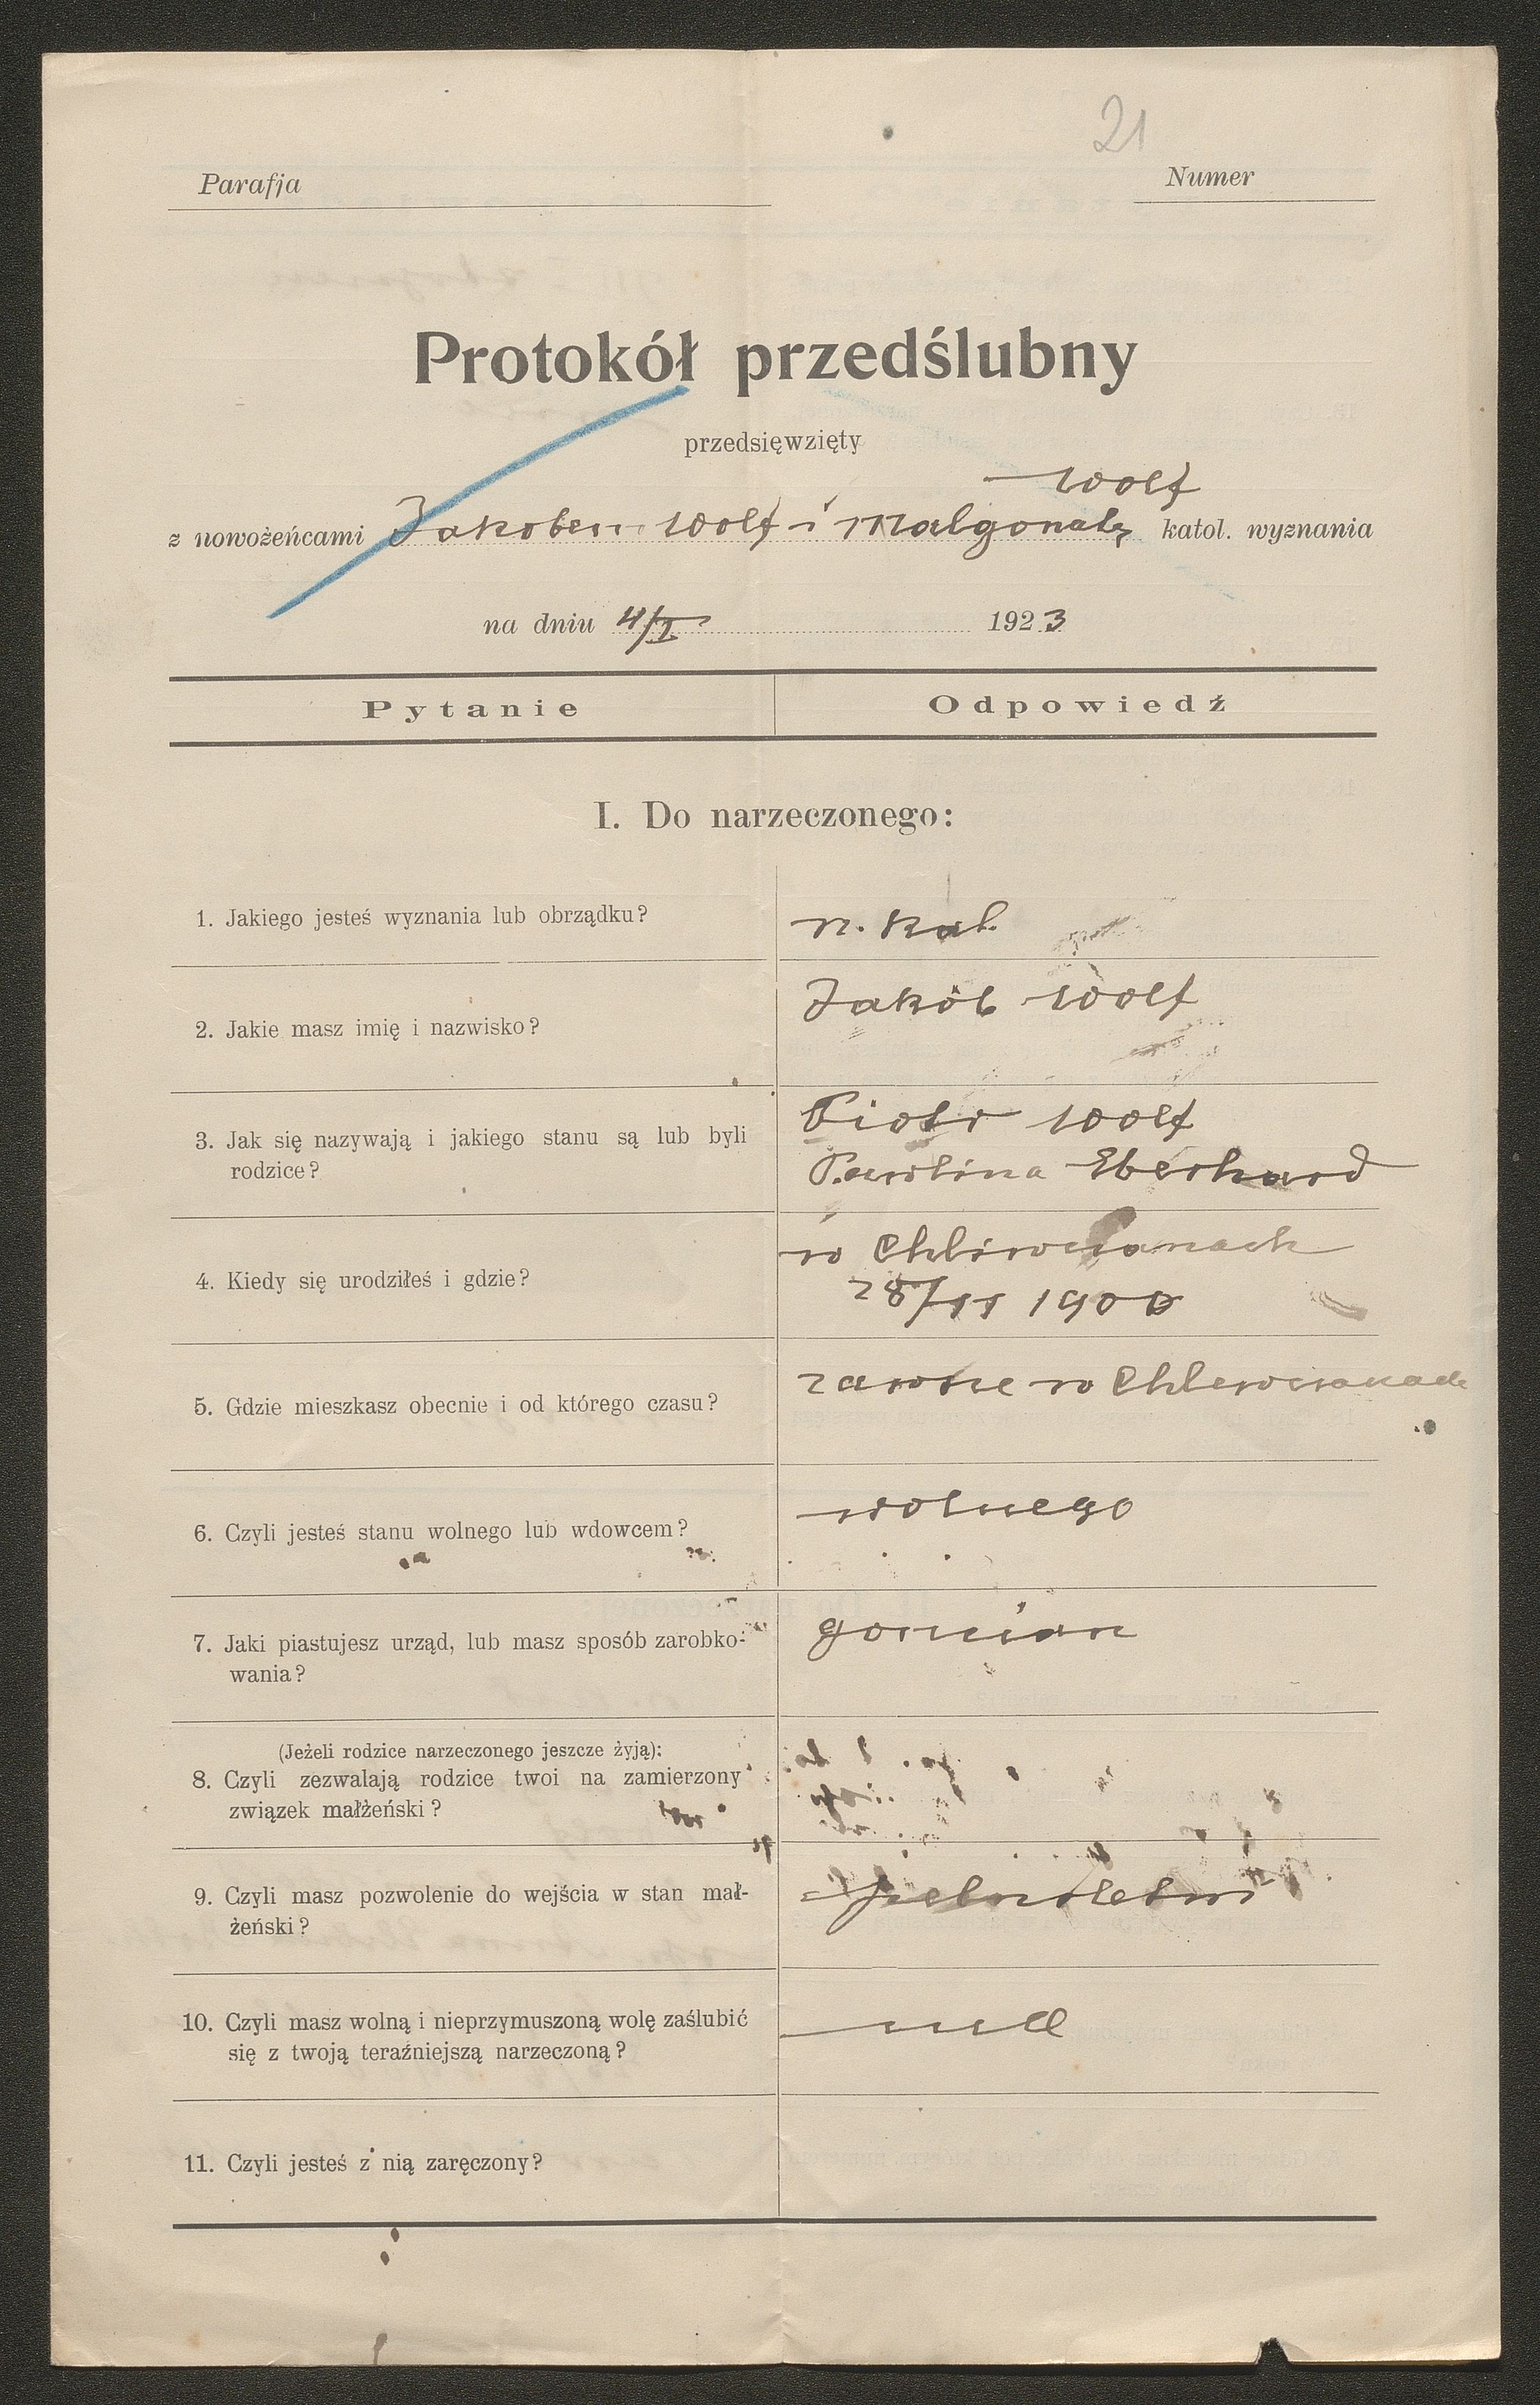 21
Parafja
Numer
Protokół przedślubny
przedsięwzięty
Wolf
z nowożeńcami Jakobem Wolf i Małgonatą katol. wyznania
na dniu 4/I 1923
Pytanie Odpowiedź
I. Do narzeczonego:
1. Jakiego jesteś wyznania lub obrządku?
r. kat.
2. Jakie masz imię i nazwisko?
Jakób Wolf
3. Jak się nazywają i jakiego stanu są lub byli
rodzice?
Piotr Wolf
Paulina Eberhard
4. Kiedy się urodziłeś i gdzie?
w Chliwczanach
28/11 1900
5. Gdzie mieszkasz obecnie i od którego czasu?
zawsze w Chlewczanach
6. Czyli jesteś stanu wolnego lub wdowcem?
wolnego
7. Jaki piastujesz urząd, lub masz sposób zarobko-
wania?
8. (Jeżeli rodzice narzeczonego jeszcze żyją):
Czyli zezwalają rodzice twoi na zamierzony
związek małżeński?
9. Czyli masz pozwolenie do wejścia w stan mał-
żeński?
pełnoletni
10. Czyli masz wolną i nieprzymuszoną wolę zaślubić
się z twoją teraźniejszą narzeczoną?
11. Czyli jesteś z nią zaręczony?